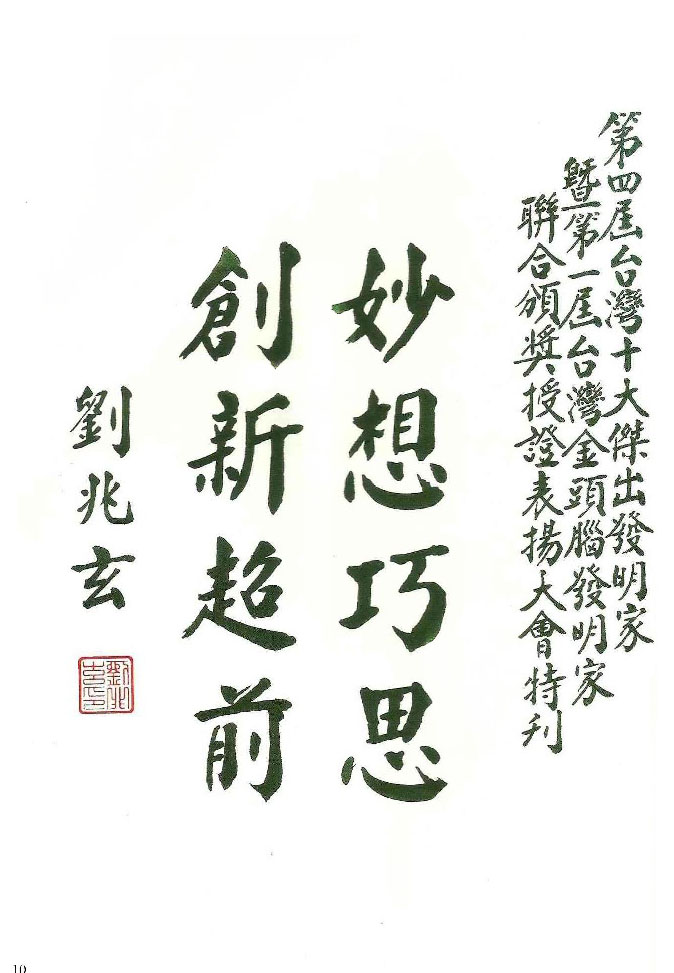 第四屆台灣十大傑出發明家
暨第一屆台灣金頭腦發明家
聯合頒獎授證表揚大會特刊
妙想巧思
創新超前
劉兆玄
10